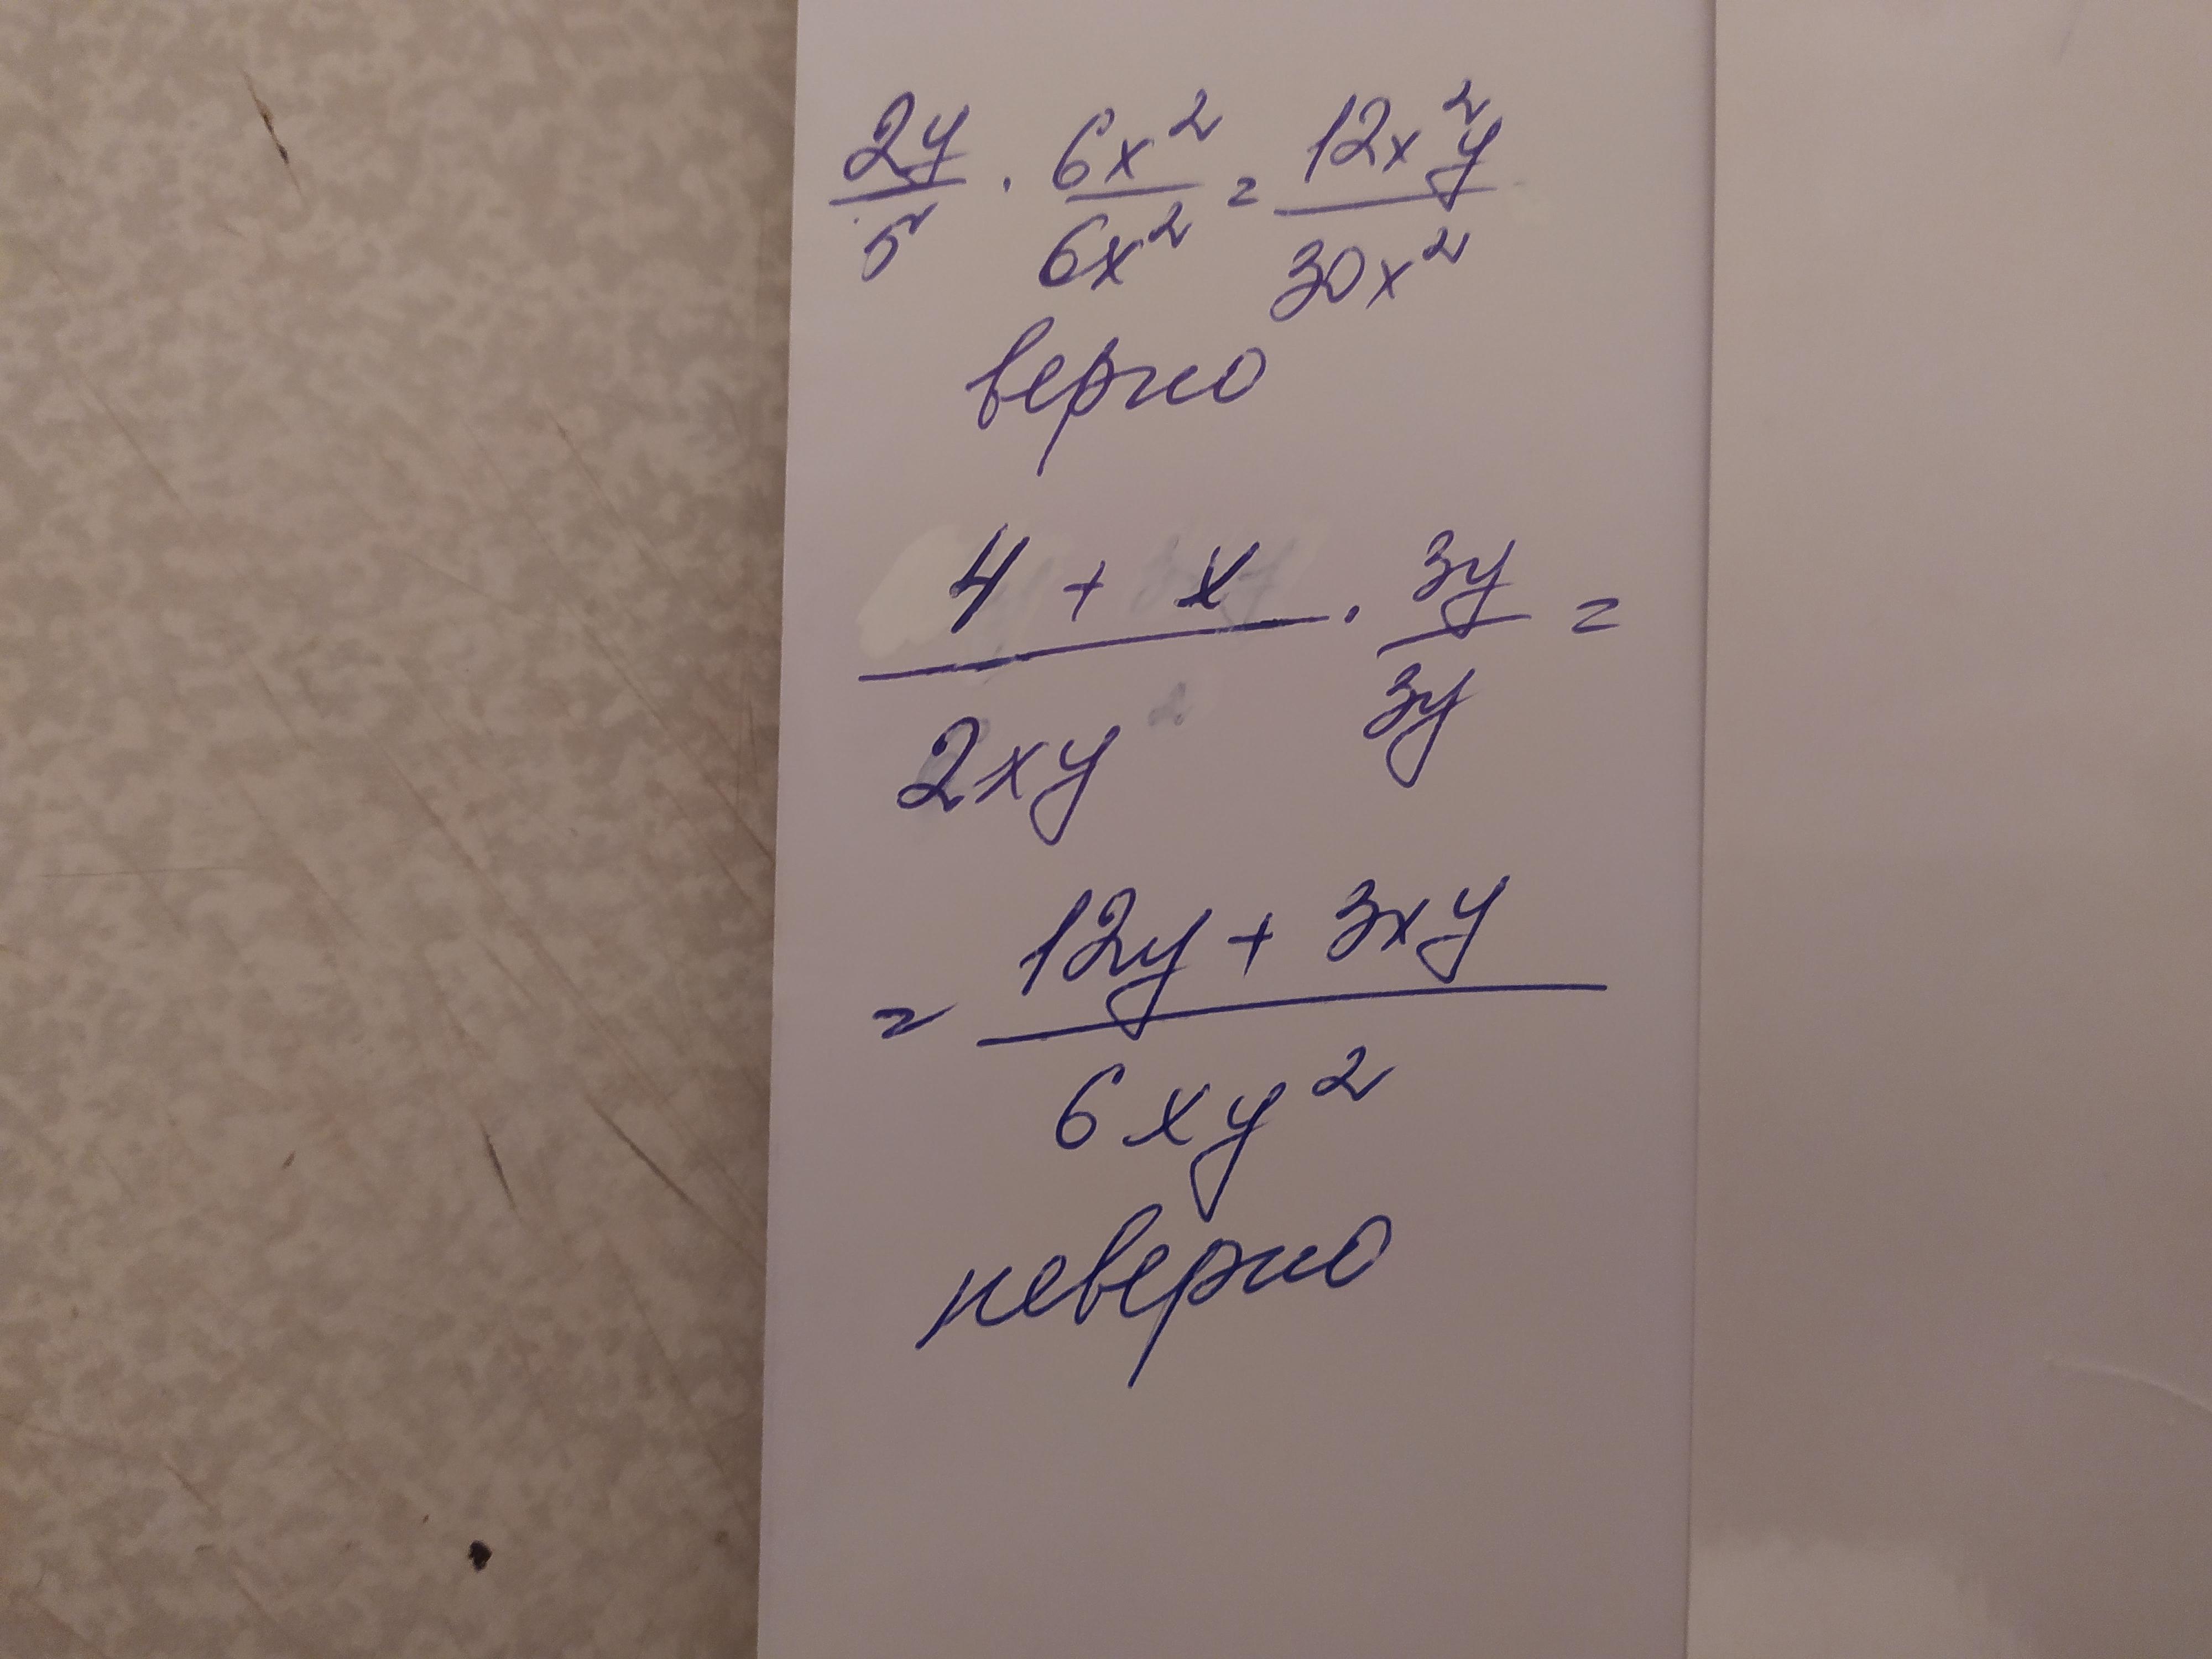 2y/5 · 6x²/6x² = 12x²y/30x²
верно
4 + x/2xy · 3y/3y =
= 12y + 3xy/6xy²
неверно